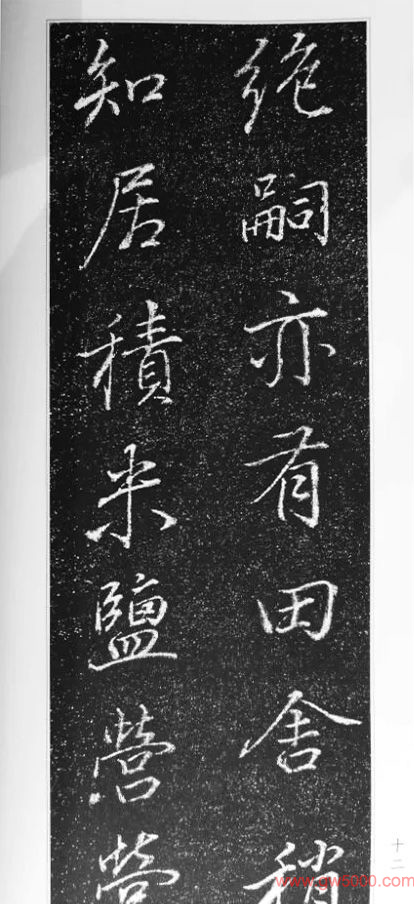 絶嗣亦有田舍稍
知居積米鹽營營
十二
www.gw5000.com